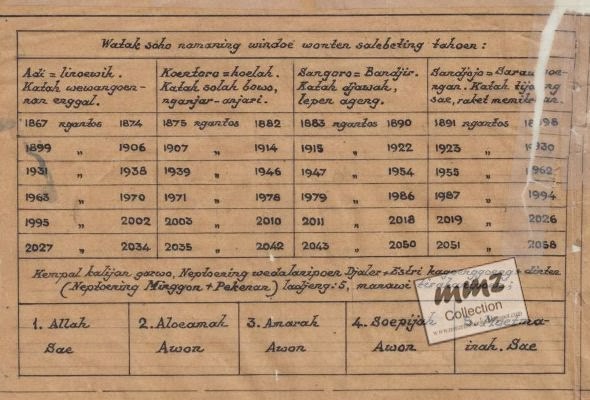 Watak soho namaning windoe wonten salebeting tahoen :
Adi = linoewih. Koentoro = hoelah. Sangoro = Bandjir. Sandjojo =
Katah wewangoen- Katah solah bowo, Katah djawah, ngan. Katah
nan enggal. nganjar-anjari. lepen ageng. sae, raket
1867 ngantos 1874 1875 ngantos 1882 1883 ngantos 1890 1891 ngantos 1898
1899 „ 1906 1907 „ 1914 1915 „ 1922 1923 „ 1930
1931 „ 1938 1939 „ 1946 1947 „ 1954 1955 „ 1962
1963 „ 1970 1971 „ 1978 1979 „ 1986 1987 „ 1994
1995 „ 2002 2003 „ 2010 2011 „ 2018 2019 „ 2026
2027 „ 2034 2035 „ 2042 2043 „ 2050 2051 „ 2058
Kempal kalijan garwo, Neptoening wedalanipoen Djaler + Estri
(Neptoening Minggon + Pekenan) ladjeng : 5, manawi
mmz
Collection
1. Allah 2. Aloeamah 3. Amarah 4. Soepijah
Sae Awon Awon Awon inah. Sae